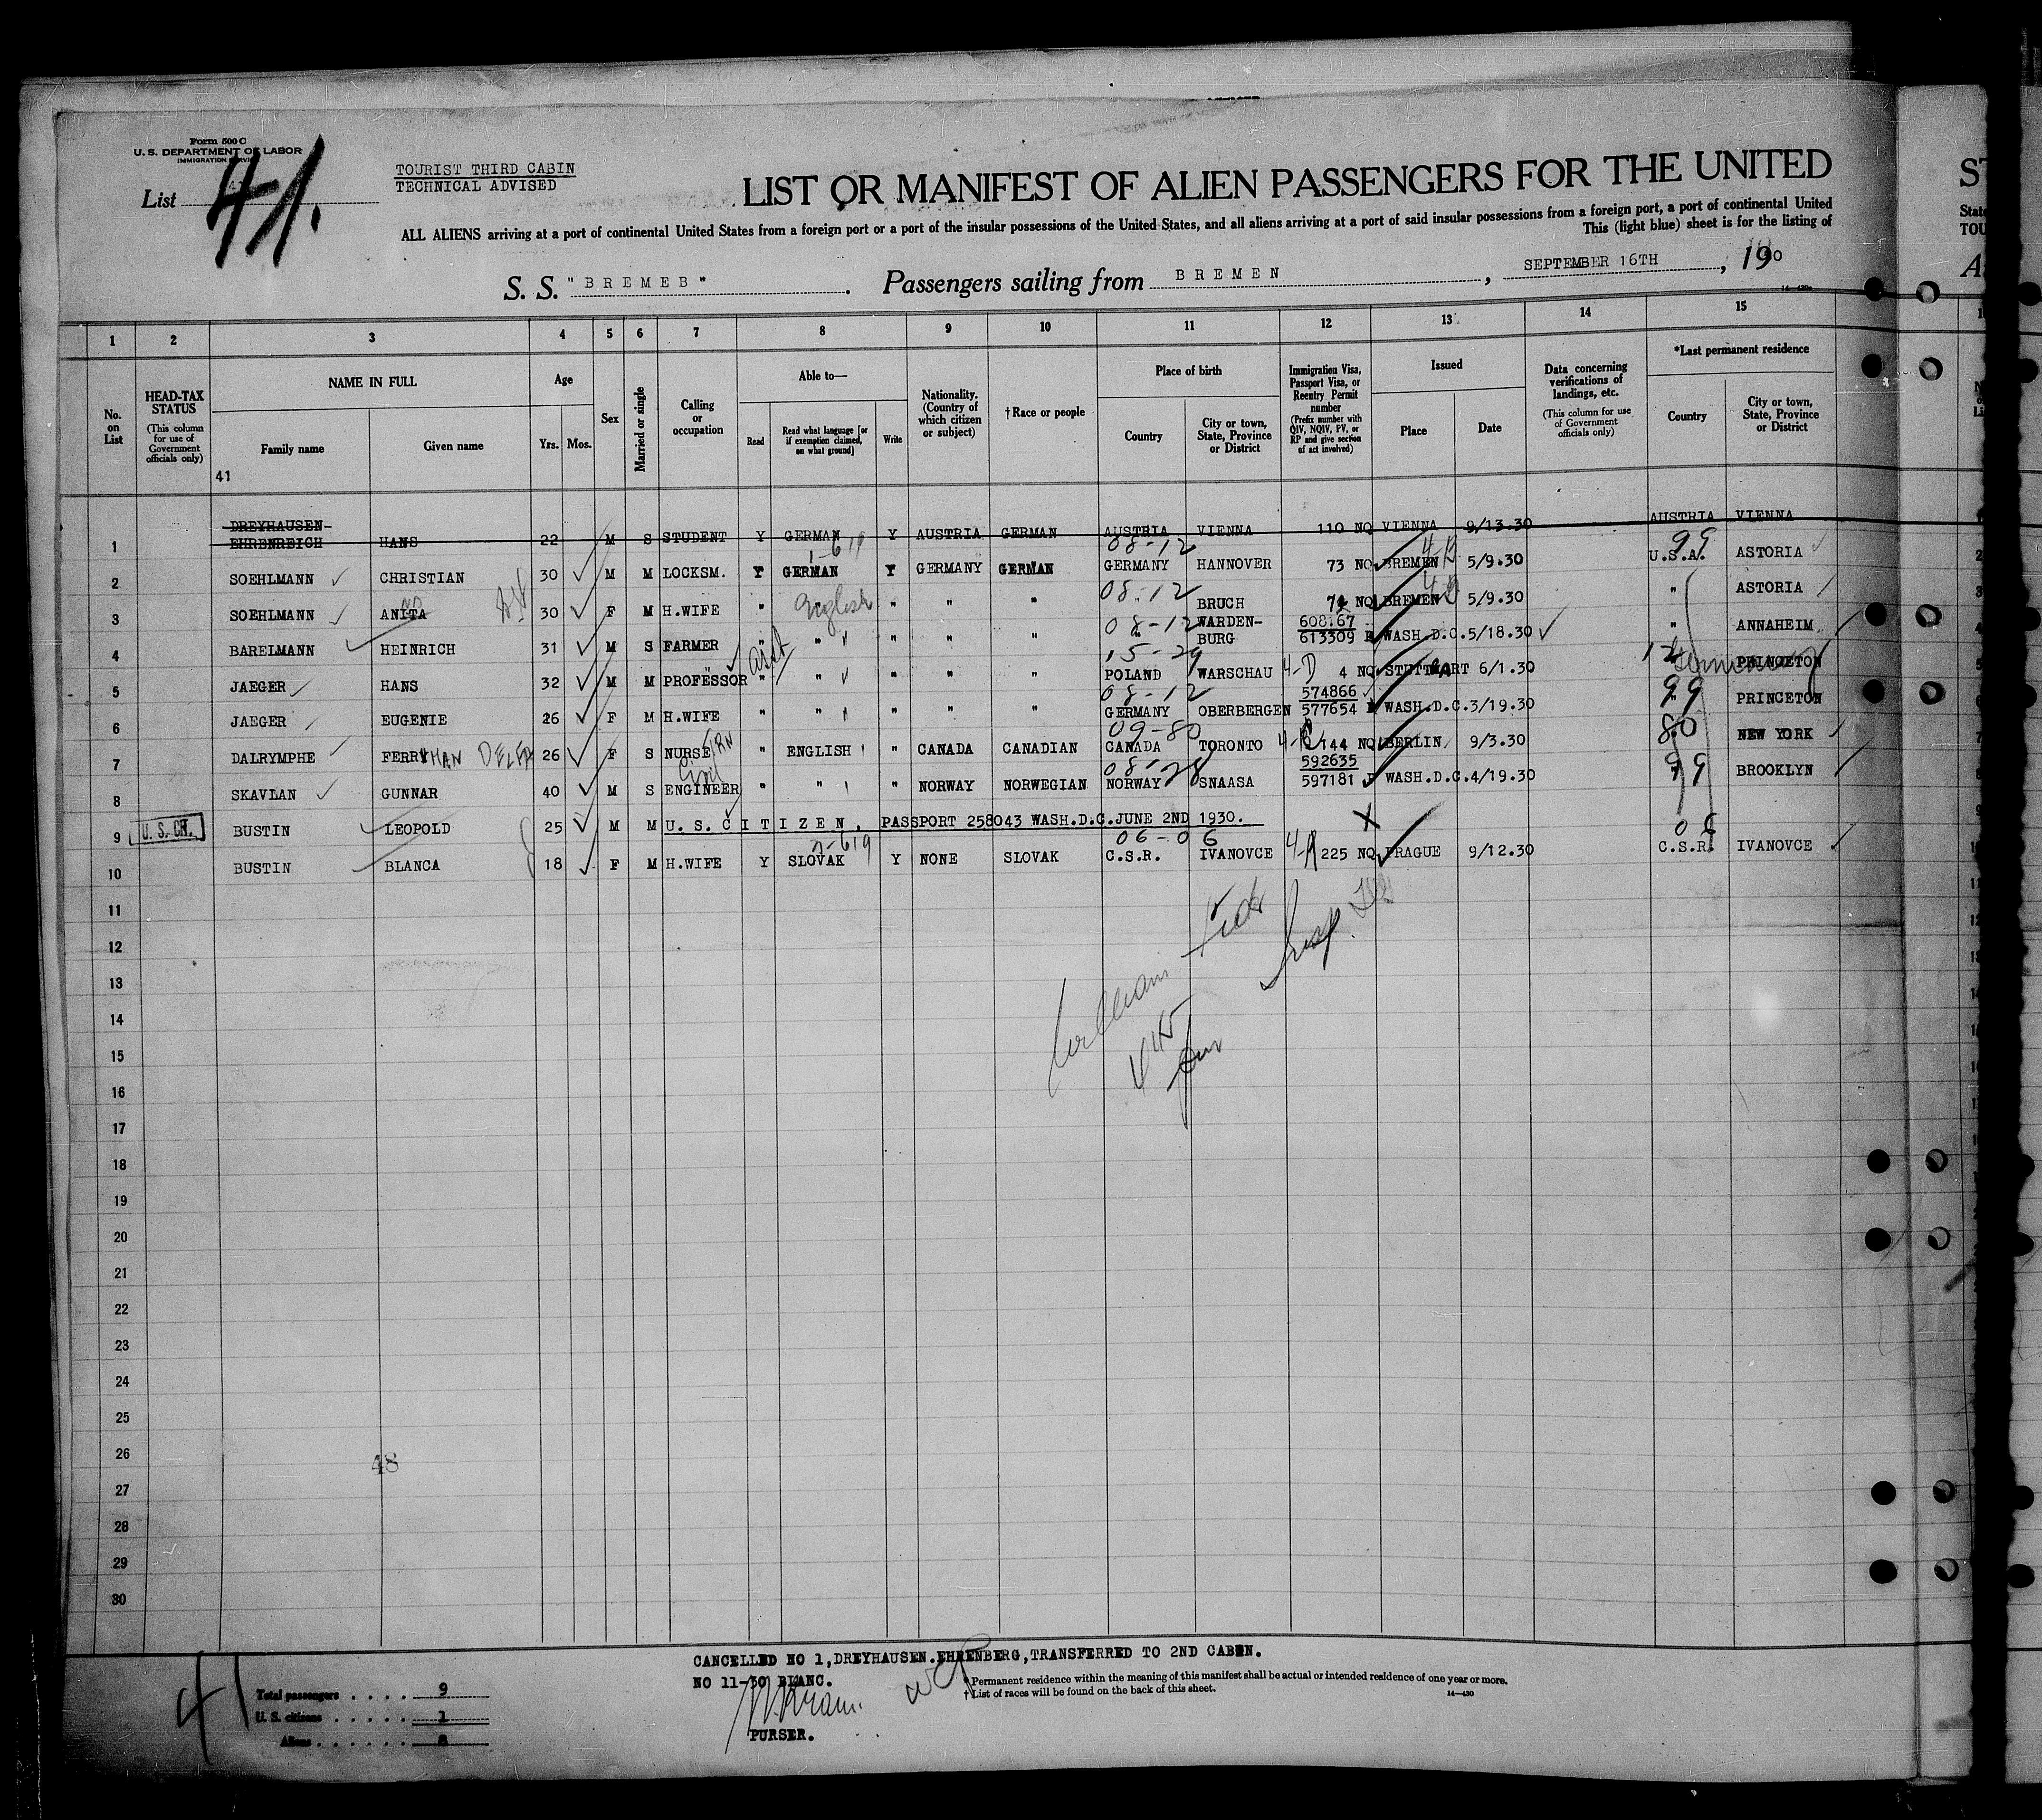 Form 500 C
U. S. DEPARTMENT OF LABOR
IMMIGRATION SERVICE
List 41.
TOURIST THIRD CABIN
TECHNICAL ADVISED
LIST OR MANIFEST OF ALIEN PASSENGERS FOR THE UNITED
ALL ALIENS arriving at a port of continental United States from a foreign port or a port of the insular possessions of the United States, and all aliens arriving at a port of said insular possessions from a foreign port, a port of continental United
This (light blue) sheet is for the listing of
S. S. "BREMEB". Passengers sailing from BREMEN, SEPTEMBER 16TH, 1930
1 2 3 4 5 6 7 8 9 10 11 12 13 14 15
No. on List
HEAD-TAX STATUS (This column for use of Government officials only)
NAME IN FULL Family name Given name
Age Yrs. Mos.
Sex
Married or single
Calling or occupation
Able to— Read Read what language [or if exemption claimed, on what ground] Write
Nationality. (Country of which citizen or subject)
†Race or people
Place of birth Country City or town, State, Province or District
Immigration Visa, Passport Visa, or Reentry Permit number (Prefix number with QIV, NQIV, PV, or RP and give section of act involved)
Issued Place Date
Data concerning verifications of landings, etc. (This column for use of Government officials only)
*Last permanent residence Country City or town, State, Province or District
41
1 DREYHAUSEN-EHRENREICH HANS 22 M S STUDENT Y GERMAN Y AUSTRIA GERMAN AUSTRIA VIENNA 110 NQ VIENNA 9/13.30 AUSTRIA VIENNA
1-619 08-12 4-D 99
2 SOEHLMANN CHRISTIAN 30 M M LOCKSM. Y GERMAN Y GERMANY GERMAN GERMANY HANNOVER 73 NQ BREMEN 5/9.30 U.S.A. ASTORIA
08-12
3 SOEHLMANN ANITA 30 F M H.WIFE " English " " " BRUCH NQ BREMEN 5/9.30 " ASTORIA
08-12
4 BARELMANN HEINRICH 31 M S FARMER " " " " " " WARDENBURG 608167 613309 WASH.D.C. 5/18.30 " ANNAHEIM
asst 15-29 12 Germany
5 JAEGER HANS 32 M M PROFESSOR " " " " " POLAND WARSCHAU 4-D 4 NQ STUTTGART 6/1.30 PRINCETON
08-12 99
6 JAEGER EUGENIE 26 F M H.WIFE " " " " " GERMANY OBERBERGEN 574866 577654 WASH.D.C. 3/19.30 PRINCETON
09-80 80
7 DALRYMPHE FERRY 26 F S NURSE " ENGLISH " CANADA CANADIAN CANADA TORONTO 144 NQ BERLIN 9/3.30 NEW YORK
Civil 08-28 99
8 SKAVLAN GUNNAR 40 M S ENGINEER " " " NORWAY NORWEGIAN NORWAY SNAASA 592635 597181 WASH.D.C. 4/19.30 BROOKLYN
9 U. S. CH. BUSTIN LEOPOLD 25 M M U.S.CITIZEN, PASSPORT 258043 WASH.D.C. JUNE 2ND 1930. X
06-06 06
10 BUSTIN BLANCA 18 F M H.WIFE Y SLOVAK Y NONE SLOVAK C.S.R. IVANOVCE 225 NQ PRAGUE 9/12.30 C.S.R. IVANOVCE
11
12
William
13
14
15
16
17
18
19
20
21
22
23
24
25
26
48
27
28
29
30
CANCELLED NO 1, DREYHAUSEN.EHRENBERG, TRANSFERRED TO 2ND CABIN.
NO 11-30 BLANC.
*Permanent residence within the meaning of this manifest shall be actual or intended residence of one year or more.
†List of races will be found on the back of this sheet.
14—430
PURSER.
41
Total passengers . . . . 9
U. S. citizens . . . . . 1
Aliens . . . . . . 8